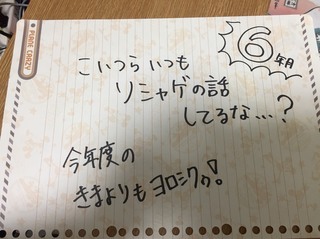 6年目
こいつらいつも
ソシャゲの話
してるな…?
今年度の
きまよりも ヨロシクゥ!
PURNE CRAZY